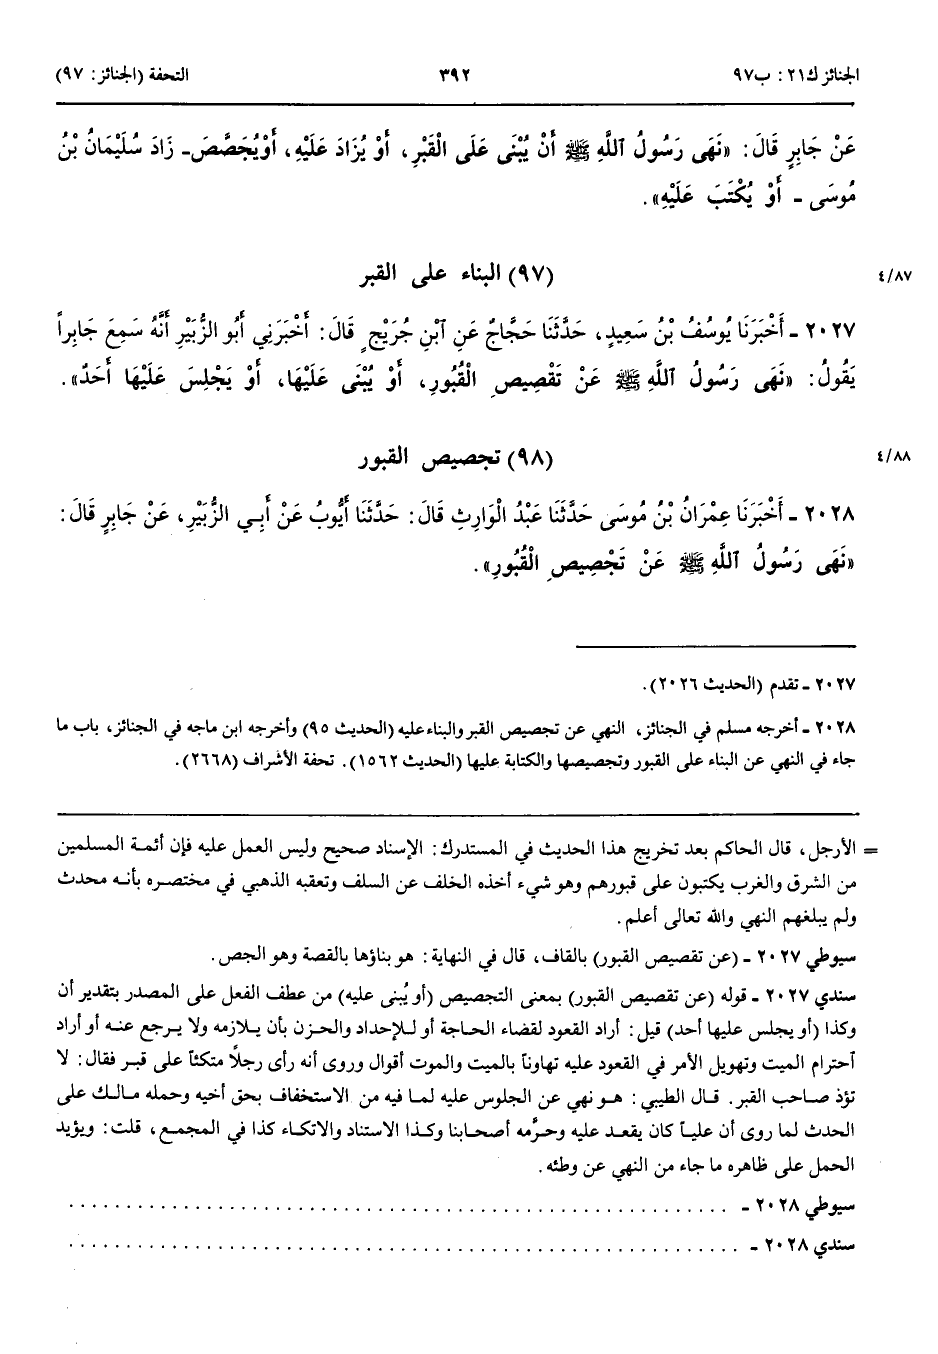 الجنائز ك٢١: ب٩٧
٣٩٢
التحفة (الجنائز: ٩٧)
عَنْ جَابِرٍ قَالَ: «نَهَى رَسُولُ ٱللَّهِ ﷺ أَنْ يُبْنَى عَلَى الْقَبْرِ، أَوْ يُزَادَ عَلَيْهِ، أَوْيُجَصَّصَ- زَادَ سُلَيْمَانُ بْنُ
مُوسَى - أَوْ يُكْتَبَ عَلَيْهِ».
(٩٧) البناء على القبر
٤/٨٧
٢٠٢٧ - أَخْبَرَنَا يُوسُفُ بْنُ سَعِيدٍ، حَدَّثَنَا حَجَّاجٌ عَنِ ٱبْنِ جُرَيْجٍ قَالَ: أَخْبَرَنِي أَبُو الزُّبَيْرِ أَنَّهُ سَمِعَ جَابِراً
يَقُولُ: «نَهَى رَسُولُ ٱللَّهِ ﷺ عَنْ تَقْصِيصِ الْقُبُورِ، أَوْ يُبْنَى عَلَيْهَا، أَوْ يَجْلِسَ عَلَيْهَا أَحَدٌ».
(٩٨) تجصيص القبور
٤/٨٨
٢٠٢٨ - أَخْبَرَنَا عِمْرَانُ بْنُ مُوسَى حَدَّثَنَا عَبْدُ الْوَارِثِ قَالَ: حَدَّثَنَا أَيُّوبُ عَنْ أَبِي الزُّبَيْرِ، عَنْ جَابِرٍ قَالَ:
«نَهَى رَسُولُ ٱللَّهِ ﷺ عَنْ تَجْصِيصِ الْقُبُورِ».
٢٠٢٧ - تقدم (الحديث ٢٠٢٦).
٢٠٢٨ - أخرجه مسلم في الجنائز، النهي عن تجصيص القبر والبناء عليه (الحديث ٩٥) وأخرجه ابن ماجه في الجنائز، باب ما
جاء في النهي عن البناء على القبور وتجصيصها والكتابة عليها (الحديث ١٥٦٢). تحفة الأشراف (٢٦٦٨).
= الأرجل، قال الحاكم بعد تخريج هذا الحديث في المستدرك: الإسناد صحيح وليس العمل عليه فإن أئمة المسلمين
من الشرق والغرب يكتبون على قبورهم وهو شيء أخذه الخلف عن السلف وتعقبه الذهبي في مختصره بأنه محدث
ولم يبلغهم النهي والله تعالى أعلم.
سيوطي ٢٠٢٧ - (عن تقصيص القبور) بالقاف، قال في النهاية: هو بناؤها بالقصة وهو الجص.
سندي ٢٠٢٧ - قوله (عن تقصيص القبور) بمعنى التجصيص (أو يُبنى عليه) من عطف الفعل على المصدر بتقدير أن
وكذا (أو يجلس عليها أحد) قيل: أراد القعود لقضاء الحاجة أو للإحداد والحزن بأن يلازمه ولا يرجع عنه أو أراد
آحترام الميت وتهويل الأمر في القعود عليه تهاوناً بالميت والموت أقوال وروى أنه رأى رجلاً متكئاً على قبر فقال: لا
تؤذ صاحب القبر. قال الطيبي: هو نهي عن الجلوس عليه لما فيه من الاستخفاف بحق أخيه وحمله مالك على
الحدث لما روى أن علياً كان يقعد عليه وحرَّمه أصحابنا وكذا الاستناد والاتكاء كذا في المجمع، قلت: ويؤيد
الحمل على ظاهره ما جاء من النهي عن وطئه.
سيوطي ٢٠٢٨ - . . . . . . . . . . . . . . . . . . . . . . . . . . . . . . . . . . . . . . . .
سندي ٢٠٢٨ - . . . . . . . . . . . . . . . . . . . . . . . . . . . . . . . . . . . . . . . .